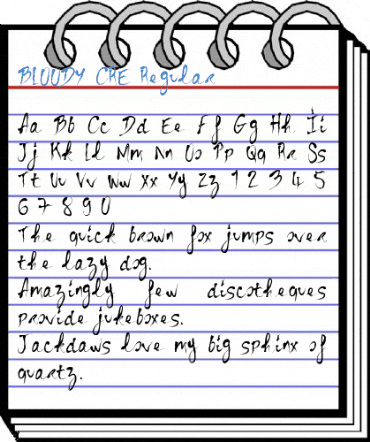 BLOODY CRE Regular
Aa Bb Cc Dd Ee Ff Gg Hh Ii
Jj Kk Ll Mm Nn Oo Pp Qq Rr Ss
Tt Uu Vv Ww Xx Yy Zz 1 2 3 4 5
6 7 8 9 0
The quick brown fox jumps over
the lazy dog.
Amazingly few discotheques
provide jukeboxes.
Jackdaws love my big sphinx of
quartz.